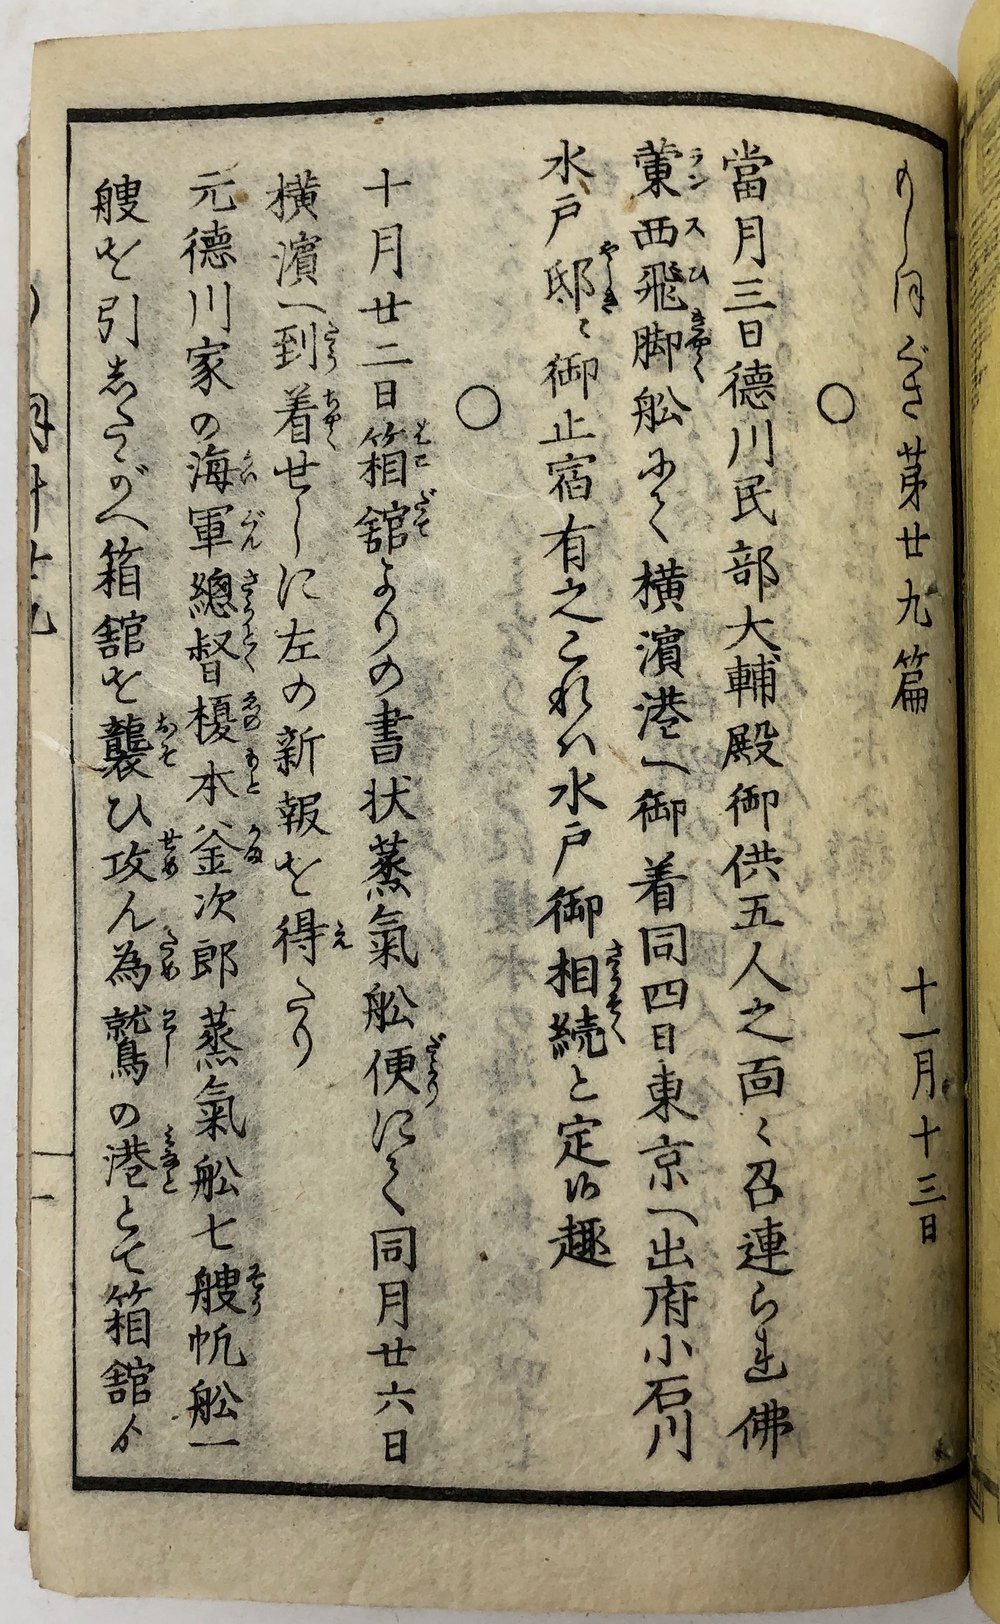 もしほぐさ第廿九篇　十一月十三日
○
當月三日德川民部大輔殿御供五人之面々召連られ佛
蘭西飛脚舩にて横濱港へ御着同四日東京へ出府小石川
水戸邸ゝ御止宿有之これハ水戸御相続と定り候趣
○
十月廿二日箱舘よりの書状蒸氣舩便にて同月廿六日
横濱へ到着せしに左の新報を得たり
元德川家の海軍總督榎本釜次郎蒸氣舩七艘帆舩一
艘を引志たがへ箱舘を襲ひ攻ん為鷲の港とて箱舘ゟ